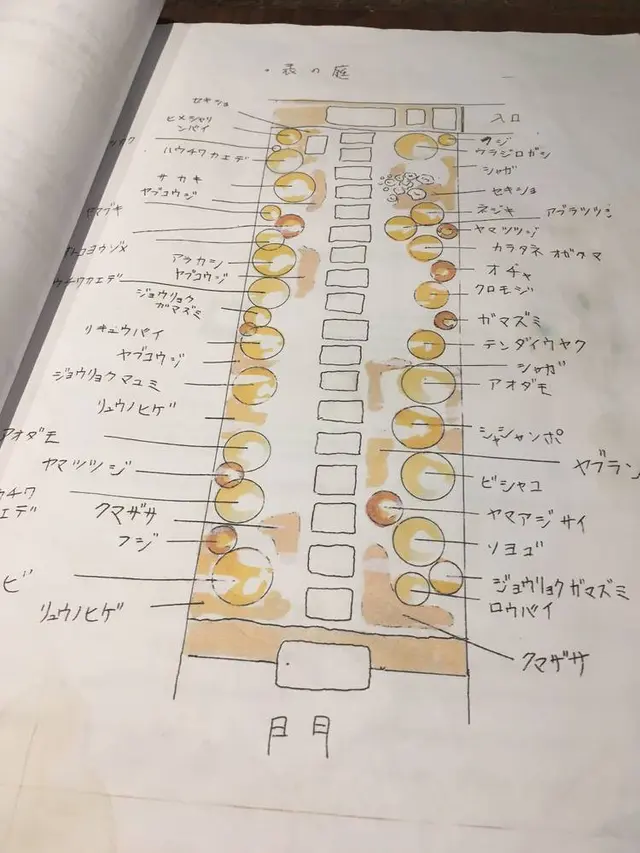 ・表の庭
入口
セキショ
ヒメシャリンバイ
ハウチワカエデ
サカキ
ヤブコウジ
アラカシ
ヤブコウジ
ジョウリョク
ガマズミ
リキュウバイ
ヤブコウジ
ジョウリョクマユミ
リュウノヒゲ
アオダモ
ヤマツツジ
クマザサ
フジ
リュウノヒゲ
フジ
ウラジロガシ
シャガ
セキショ
ネジキ
アブラツツジ
ヤマツツジ
カラタネオガタマ
オチャ
クロモジ
ガマズミ
テンダイウヤク
シャガ
アオダモ
シャシャンポ
ヤブラン
ビシャコ
ヤマアジサイ
ソヨゴ
ジョウリョクガマズミ
ロウバイ
クマザサ
門